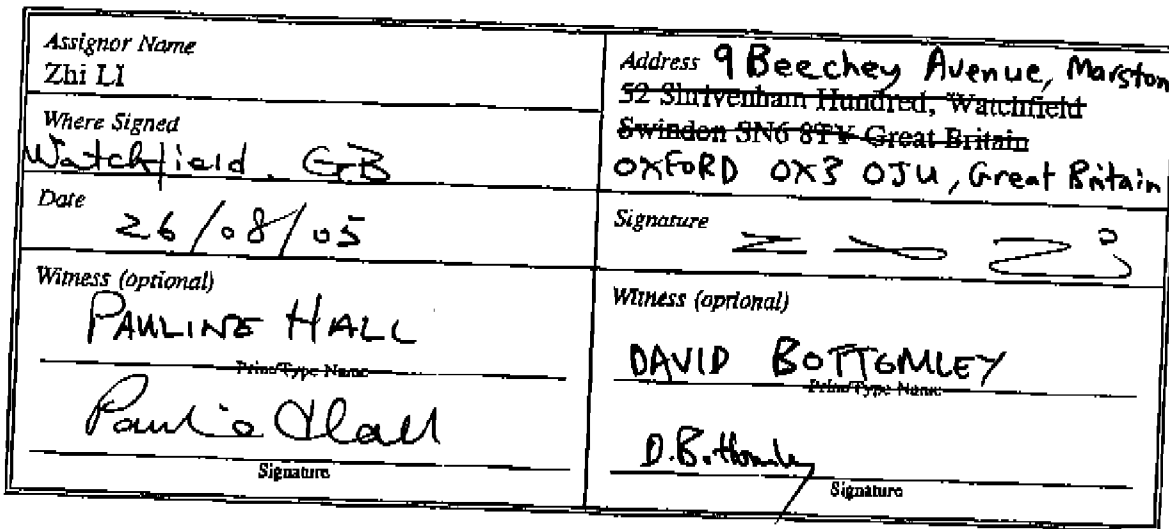 Assignor Name
Zhi LI
Where Signed
Watchfield, GB
Date
26/08/05
Witness (optional)
PAULINE HALL
Print/Type Name
Signature
Address 9 Beechey Avenue, Marston
52 Shrivenham Hundred, Watchfield
Swindon SN6 8TY Great Britain
OXFORD OX3 0JU, Great Britain
Signature
Witness (optional)
DAVID BOTTOMLEY
Print/Type Name
D. Bottomley
Signature